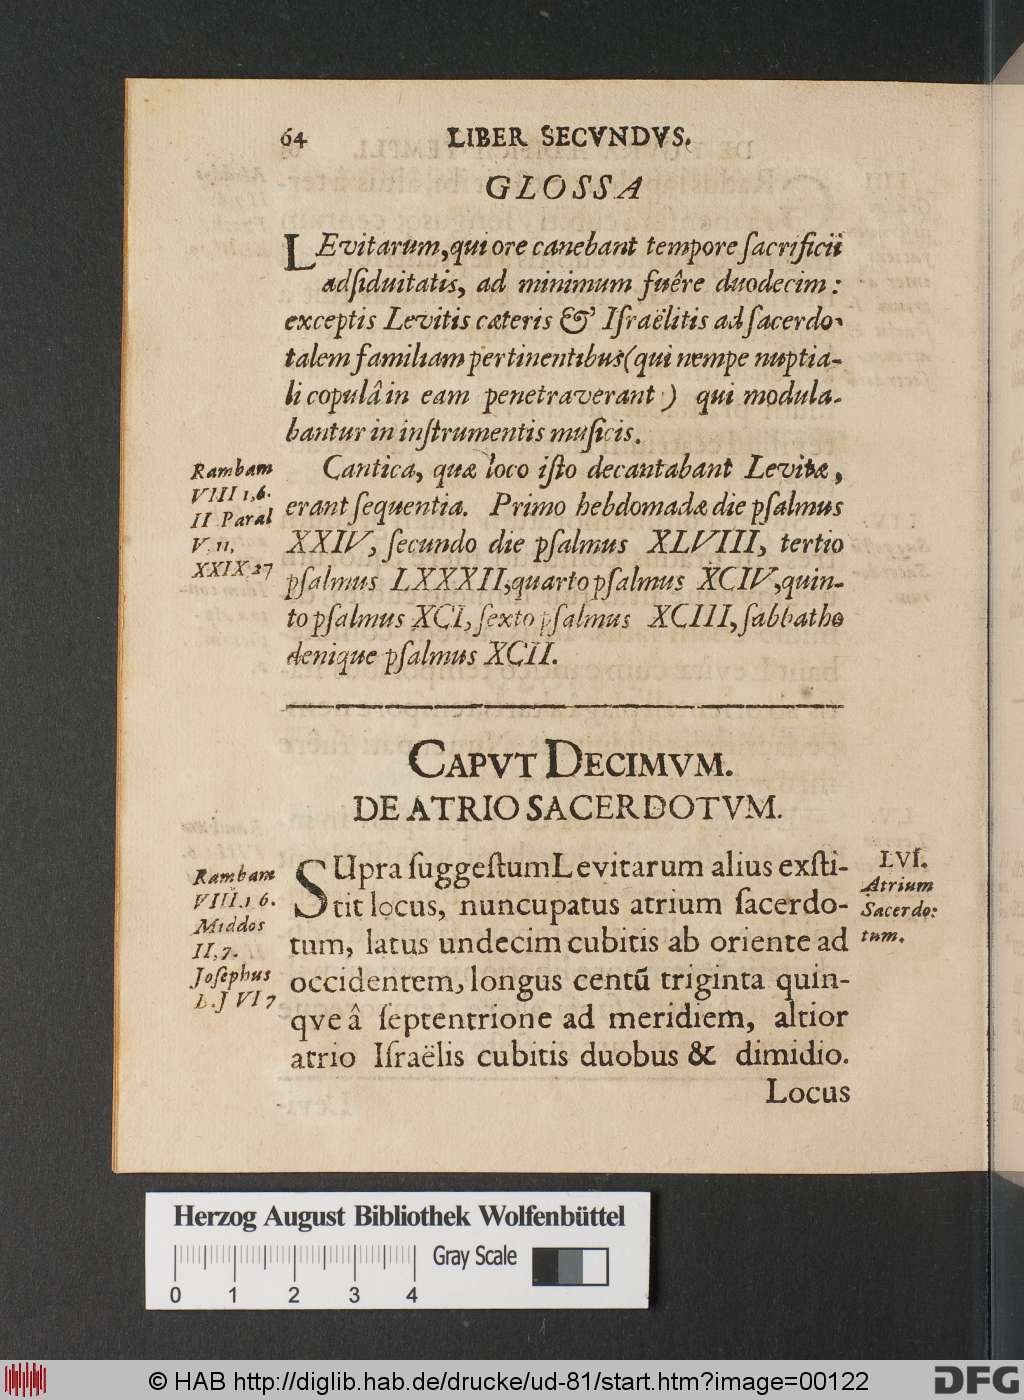 64 LIBER SECVNDVS.
GLOSSA
LEvitarum, qui ore canebant tempore ſacrificii
adſiduitatis, ad minimum fuêre duodecim:
exceptis Levitis cæteris & Iſraëlitis ad ſacerdo-
talem familiam pertinentibus (qui nempe nuptia-
li copulâ in eam penetraverant) qui modula-
bantur in inſtrumentis muſicis.
Rambam
VIII 1,6.
II Paral
V. 11,
XXIX 27
Cantica, quæ loco iſto decantabant Levitæ,
erant ſequentia. Primo hebdomadæ die pſalmus
XXIV, ſecundo die pſalmus XLVIII, tertio
pſalmus LXXXII, quarto pſalmus XCIV, quin-
to pſalmus XCI, ſexto pſalmus XCIII, ſabbatho
denique pſalmus XCII.
CAPVT DECIMVM.
DE ATRIO SACERDOTVM.
Rambam
VIII.1 6.
Middos
II, 7.
Joſephus
B.J VI 7
SUpra ſuggeſtum Levitarum alius exſti-
tit locus, nuncupatus atrium ſacerdo-
tum, latus undecim cubitis ab oriente ad
occidentem, longus centū triginta quin-
qve â ſeptentrione ad meridiem, altior
atrio Iſraëlis cubitis duobus & dimidio.
LVI.
Atrium
Sacerdo:
tum.
Locus
Herzog August Bibliothek Wolfenbüttel
Gray Scale
0 1 2 3 4
© HAB http://diglib.hab.de/drucke/ud-81/start.htm?image=00122
DFG